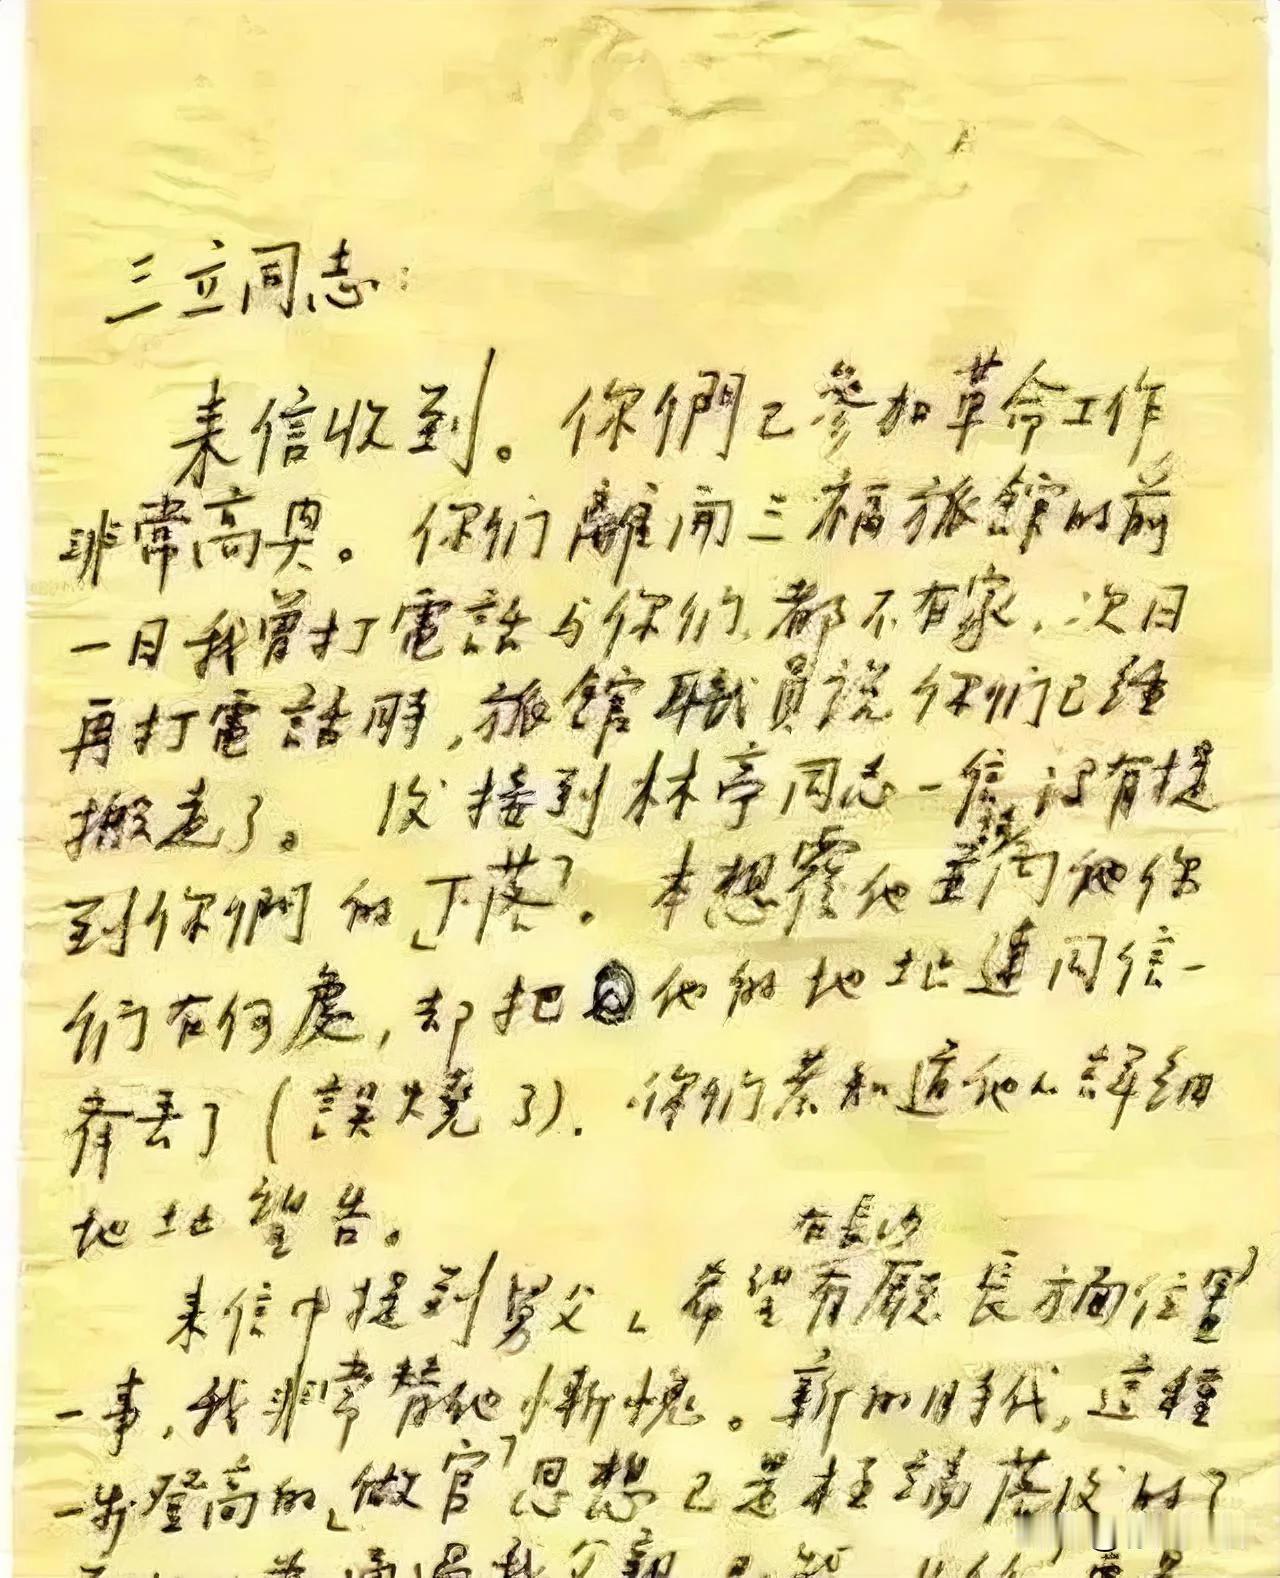 三立同志：
来信收到。你們已參加革命工作
非常高兴。你们離開三福旅館的前
一日我曾打電話与你们，都不在家，次日
再打電話時，旅館職員說你们已經
搬走了。后接到林亭同志一信，没有提
到你們的「下落」。本想覆他並
他你
们在何處，却把他的地址連同信一
齊丢了（誤燒了）。你们若知道他的詳細
地址望告。
来信中提到舅父「希望在長沙有廳長方面位置」
一事，我非常替他慚愧。新的時代，這種
一步登高的「做官」思想已是极端落後的了
通過我父親